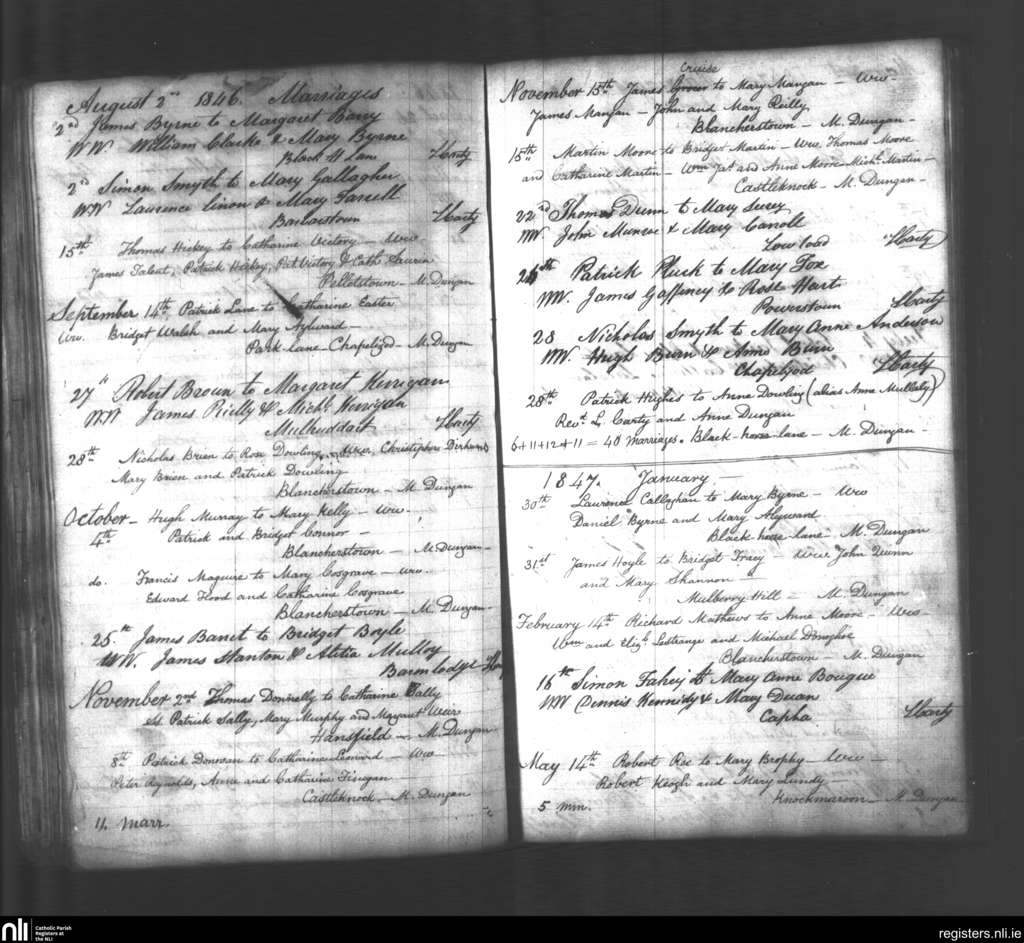 August 2nd 1846. Marriages
2nd James Byrne to Margaret Berry
WW William Clarke & Mary Byrne
Black H Lane LCarty
2nd Simon Smyth to Mary Gallagher
WW Laurence & Mary Farrell
LCarty
15th Thomas Hickey to Catharine Victory – Ww.
James Talent, Patrick Hickey, Pat Victory & Cath.
Pelletstown – M. Dungan
September 14th Patrick Lane to Catharine Easter
Ww. Bridget Walsh and Mary Aylward –
Park lane – Chapelizod – M. Dungan
27th Robert Brown to Margaret Kerrigan
WW James Rielly & Michl. Kerrigan
Mulhuddart LCarty
28th Nicholas Brien to Rose Dowling, Christopher
Mary Brien and Patrick Dowling
Blancherstown – M Dungan
October – Hugh Murray to Mary Kelly – Ww.
4th. Patrick and Bridget Connor –
Blancherstown – M. Dungan –
do. Francis Maguire to Mary Cosgrave – Ww.
Edward Flood and Catharine Cosgrave
Blancherstown – M. Dungan –
25th James Banet to Bridget Boyle
WW. James Stanton & Alitia Mulloy
November 2nd Thomas Donnelly to Catharine Sally
Patrick Sally, Mary Murphy and Margaret Weir
Hansfield – M. Dungan
8th Patrick Donovan to Catharine Leonard – Ww
Peter Reynolds, Anne and Catharine Finegan
Castleknock – M. Dungan
11. marr.
Cruise
November 15th James Grover to Mary Mangan – Ww –
James Mangan – John and Mary Reilly,
Blancherstown – M. Dungan –
15th Martin Moore to Bridget Martin – Ww. Thomas Moore
and Catharine Martin – Wm Jas. and Anne Moore Michl. Martin –
Castleknock – M. Dungan –
22nd Thomas Dunn to Mary
WW. John Munroe & Mary Carroll
Low road LCarty
Patrick Pluck to Mary Fox
WW. James Gaffiney & Rose Hart
Powerstown LCarty
28 Nicholas Smyth to Mary Anne Anderson
WW. Hugh Burn & Anne Burn
Chapelzod LCarty
28th. Patrick Hughes to Anne Dowling (alias Anne Mullaly)
Revd. L. Carty and Anne Dungan
6+11+12+11 = 40 Marriages. Black-horse-lane – M. Dungan –
1847. January –
30th Laurence Callaghan to Mary Byrne – Ww
Daniel Byrne and Mary Alyward
Black horse lane – M. Dungan
31st James Hoyle to Bridget Tracy Ww John Quinn
and Mary Shannon –
Mulberry Hill – M. Dungan
February 14th Richard Mathews to Anne Moore – Ww –
Wm and Eliz. Lestrange and Michael Donohoe
Blancherstown – M. Dungan
16th Simon Fahey to Mary Anne Bougue
WW Dennis Kennidy & Mary Duan
Capha LCarty
May 14th Robert Roe to Mary Brophy – Ww –
Robert Keogh and Mary Lundy –
Knockmaroon – M. Dungan
5 mm.
nli Catholic Parish
Registers at
the NLI
registers.nli.ie